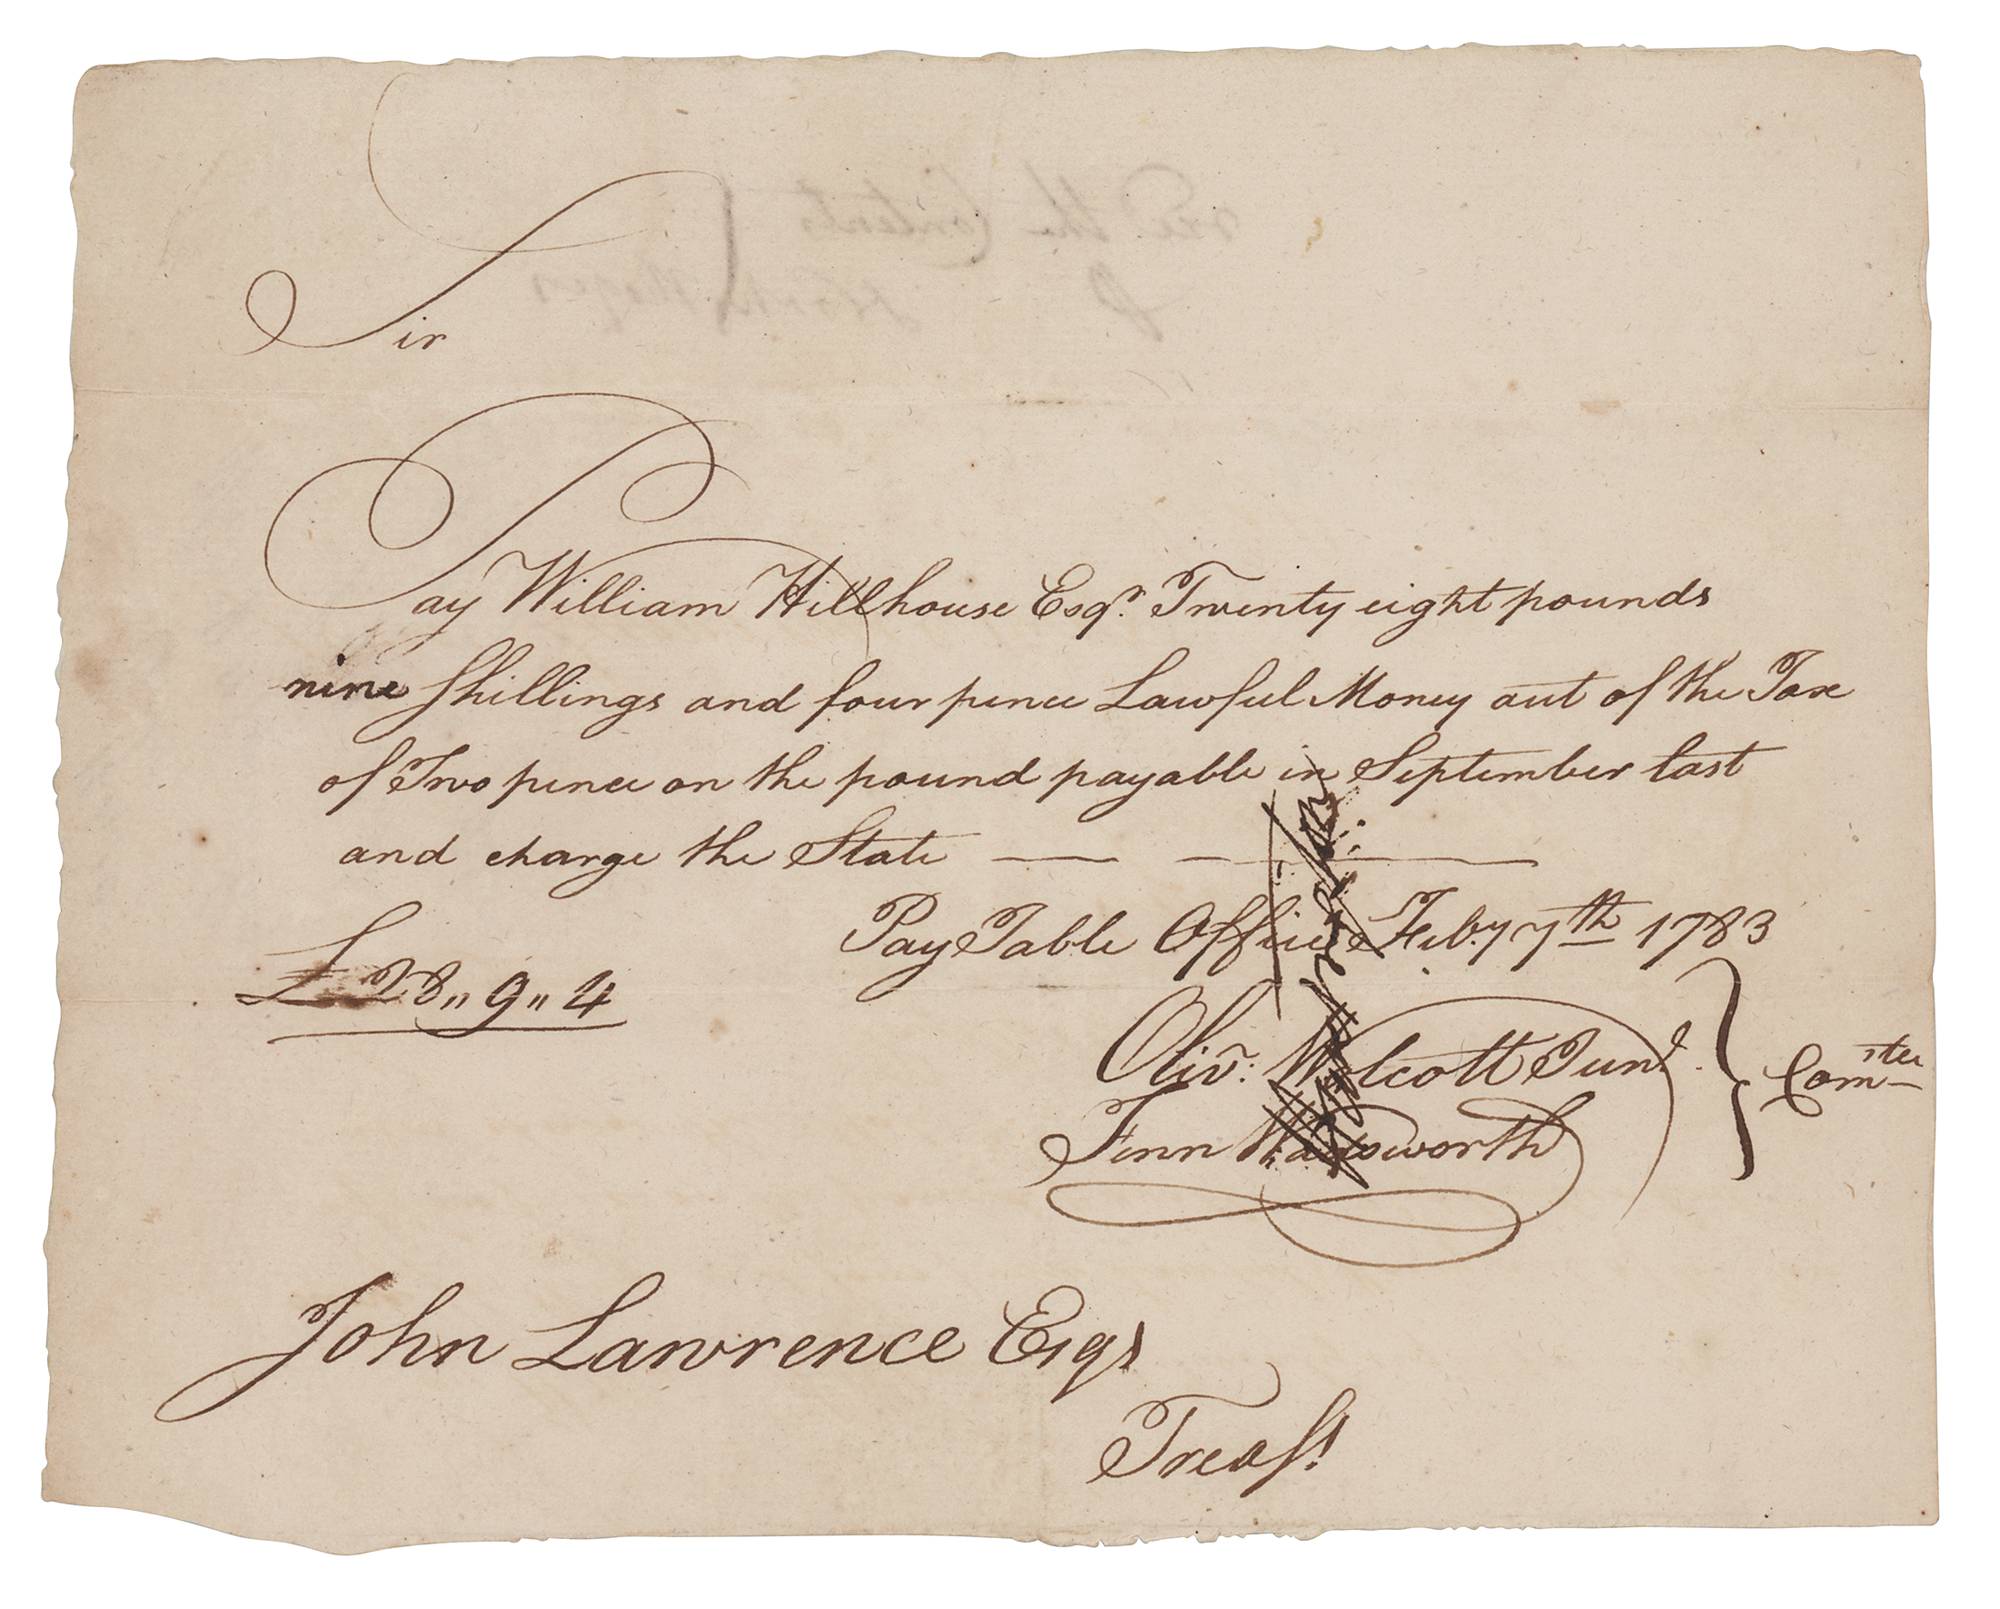 Sir
Pay William Hillhouse Esqr. Twenty eight pounds
nine Shillings and four pence Lawful Money out of the Tax
of Two pence on the pound payable in September last
and charge the State
Pay Table Office Feby 7th 1783
£28,, 9,, 4
Olivr. Wolcott Junr.
Fenn Wadsworth
Comtee
John Lawrence Esqr
Treasr.
Recd the Contents